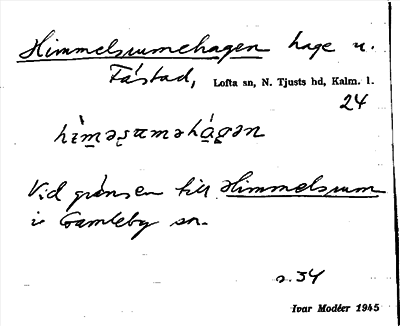 Himmelsrumehagen hage u.
Fåstad, Lofta sn, N. Tjusts hd, Kalm. l.
24
Vid gränsen till Himmelsrum
i Gamleby sn.
s. 54
Ivar Modéer 1945